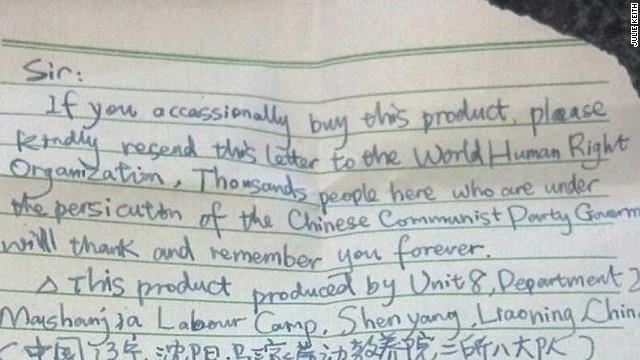 Sir:
If you accassionally buy this product, please
kindly resend this letter to the World Human Right
Organization, Thousands people here who are under
the persicuton of the Chinese Communist Party Governm
will thank and remember you forever.
△ This product produced by Unit 8, Department 2
Mashanjia Labour Camp, Shenyang, Liaoning, Chin
(中国, 辽宁, 沈阳, 马三家劳动教养院二所八大队)
JULIE KEITH